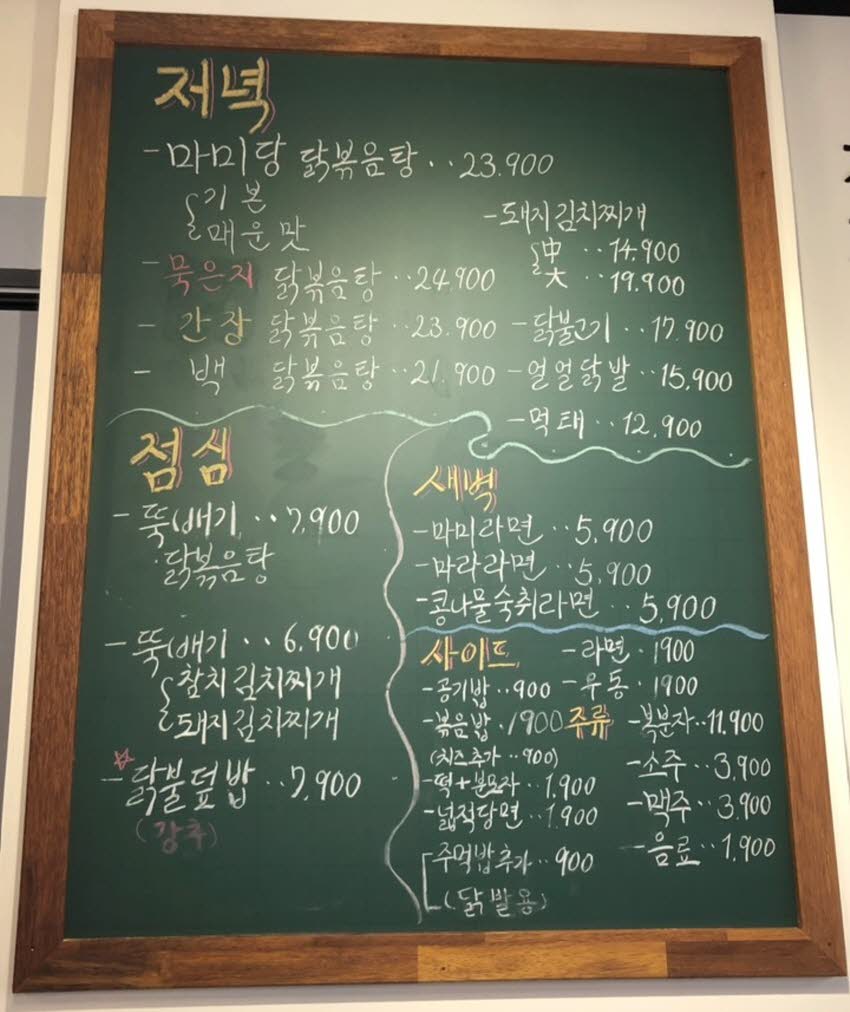 저녁
- 마미당 닭볶음탕 ‥23.900
기본
매운맛
- 묵은지 닭볶음탕 ‥24.900
- 간장 닭볶음탕 ‥23.900
- 백 닭볶음탕 ‥21.900
- 돼지김치찌개
中 ‥14.900
大 ‥19.900
- 닭불고기 ‥17.900
- 얼얼닭발 ‥15.900
- 먹태 ‥12.900
점심
- 뚝배기 ‥7.900
닭볶음탕
- 뚝배기 ‥6.900
참치김치찌개
돼지김치찌개
- 닭불덮밥 ‥7.900
(강추)
새벽
- 마미라면 ‥5.900
- 마라라면 ‥5.900
- 콩나물숙취라면 ‥5.900
사이드
- 공기밥 ‥900
- 볶음밥 ·1900
(치즈추가 ‥900)
- 떡+분모자 ‥1.900
- 넓적당면 ‥1.900
주먹밥추가 ‥900
(닭발용)
- 라면 ·1900
- 우동 ·1900
주류
- 복분자 ‥11.900
- 소주 ‥3.900
- 맥주 ‥3.900
- 음료 ‥1.900